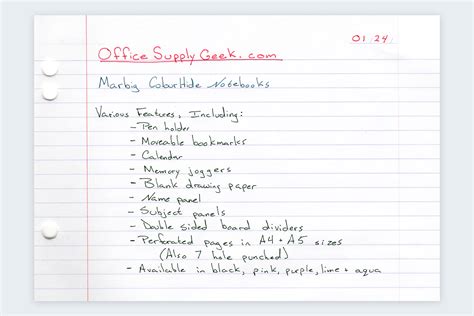 01 24
OfficeSupplyGeek.com
Marbig ColourHide Notebooks
Various Features, Including:
- Pen holder
- Moveable bookmarks
- Calendar
- Memory joggers
- Blank drawing paper
- Name panel
- Subject panels
- Double sided board dividers
- Perforated pages in A4 + A5 sizes
(Also 7 hole punched)
- Available in black, pink, purple, lime + aqua